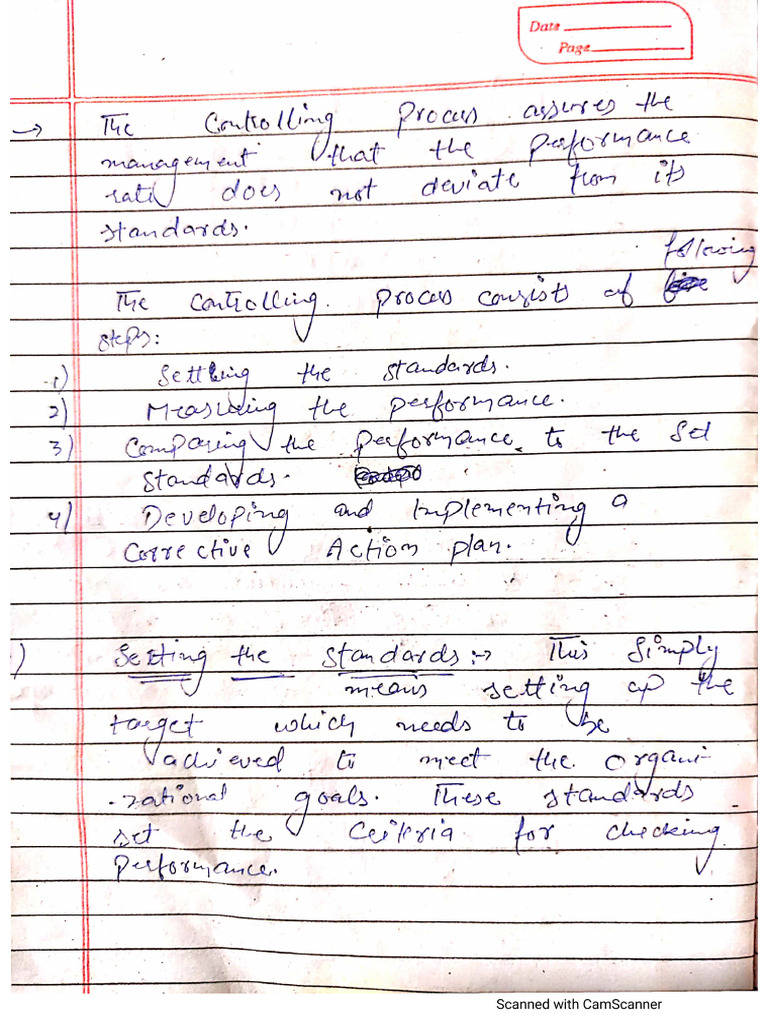 Date
Page
→ The Controlling process assures the
management that the performance
rate does not deviate from its
standards.
following
The Controlling process consists of
steps:
1) Setting the standards.
2) Measuring the performance.
3) Comparing the performance to the set
standards.
4) Developing and Implementing a
Corrective Action plan.
) Setting the Standards :→ This Simply
means setting up the
target which needs to be
achieved to meet the organi-
zational goals. These standards
set the Criteria for checking
performance.
Scanned with CamScanner